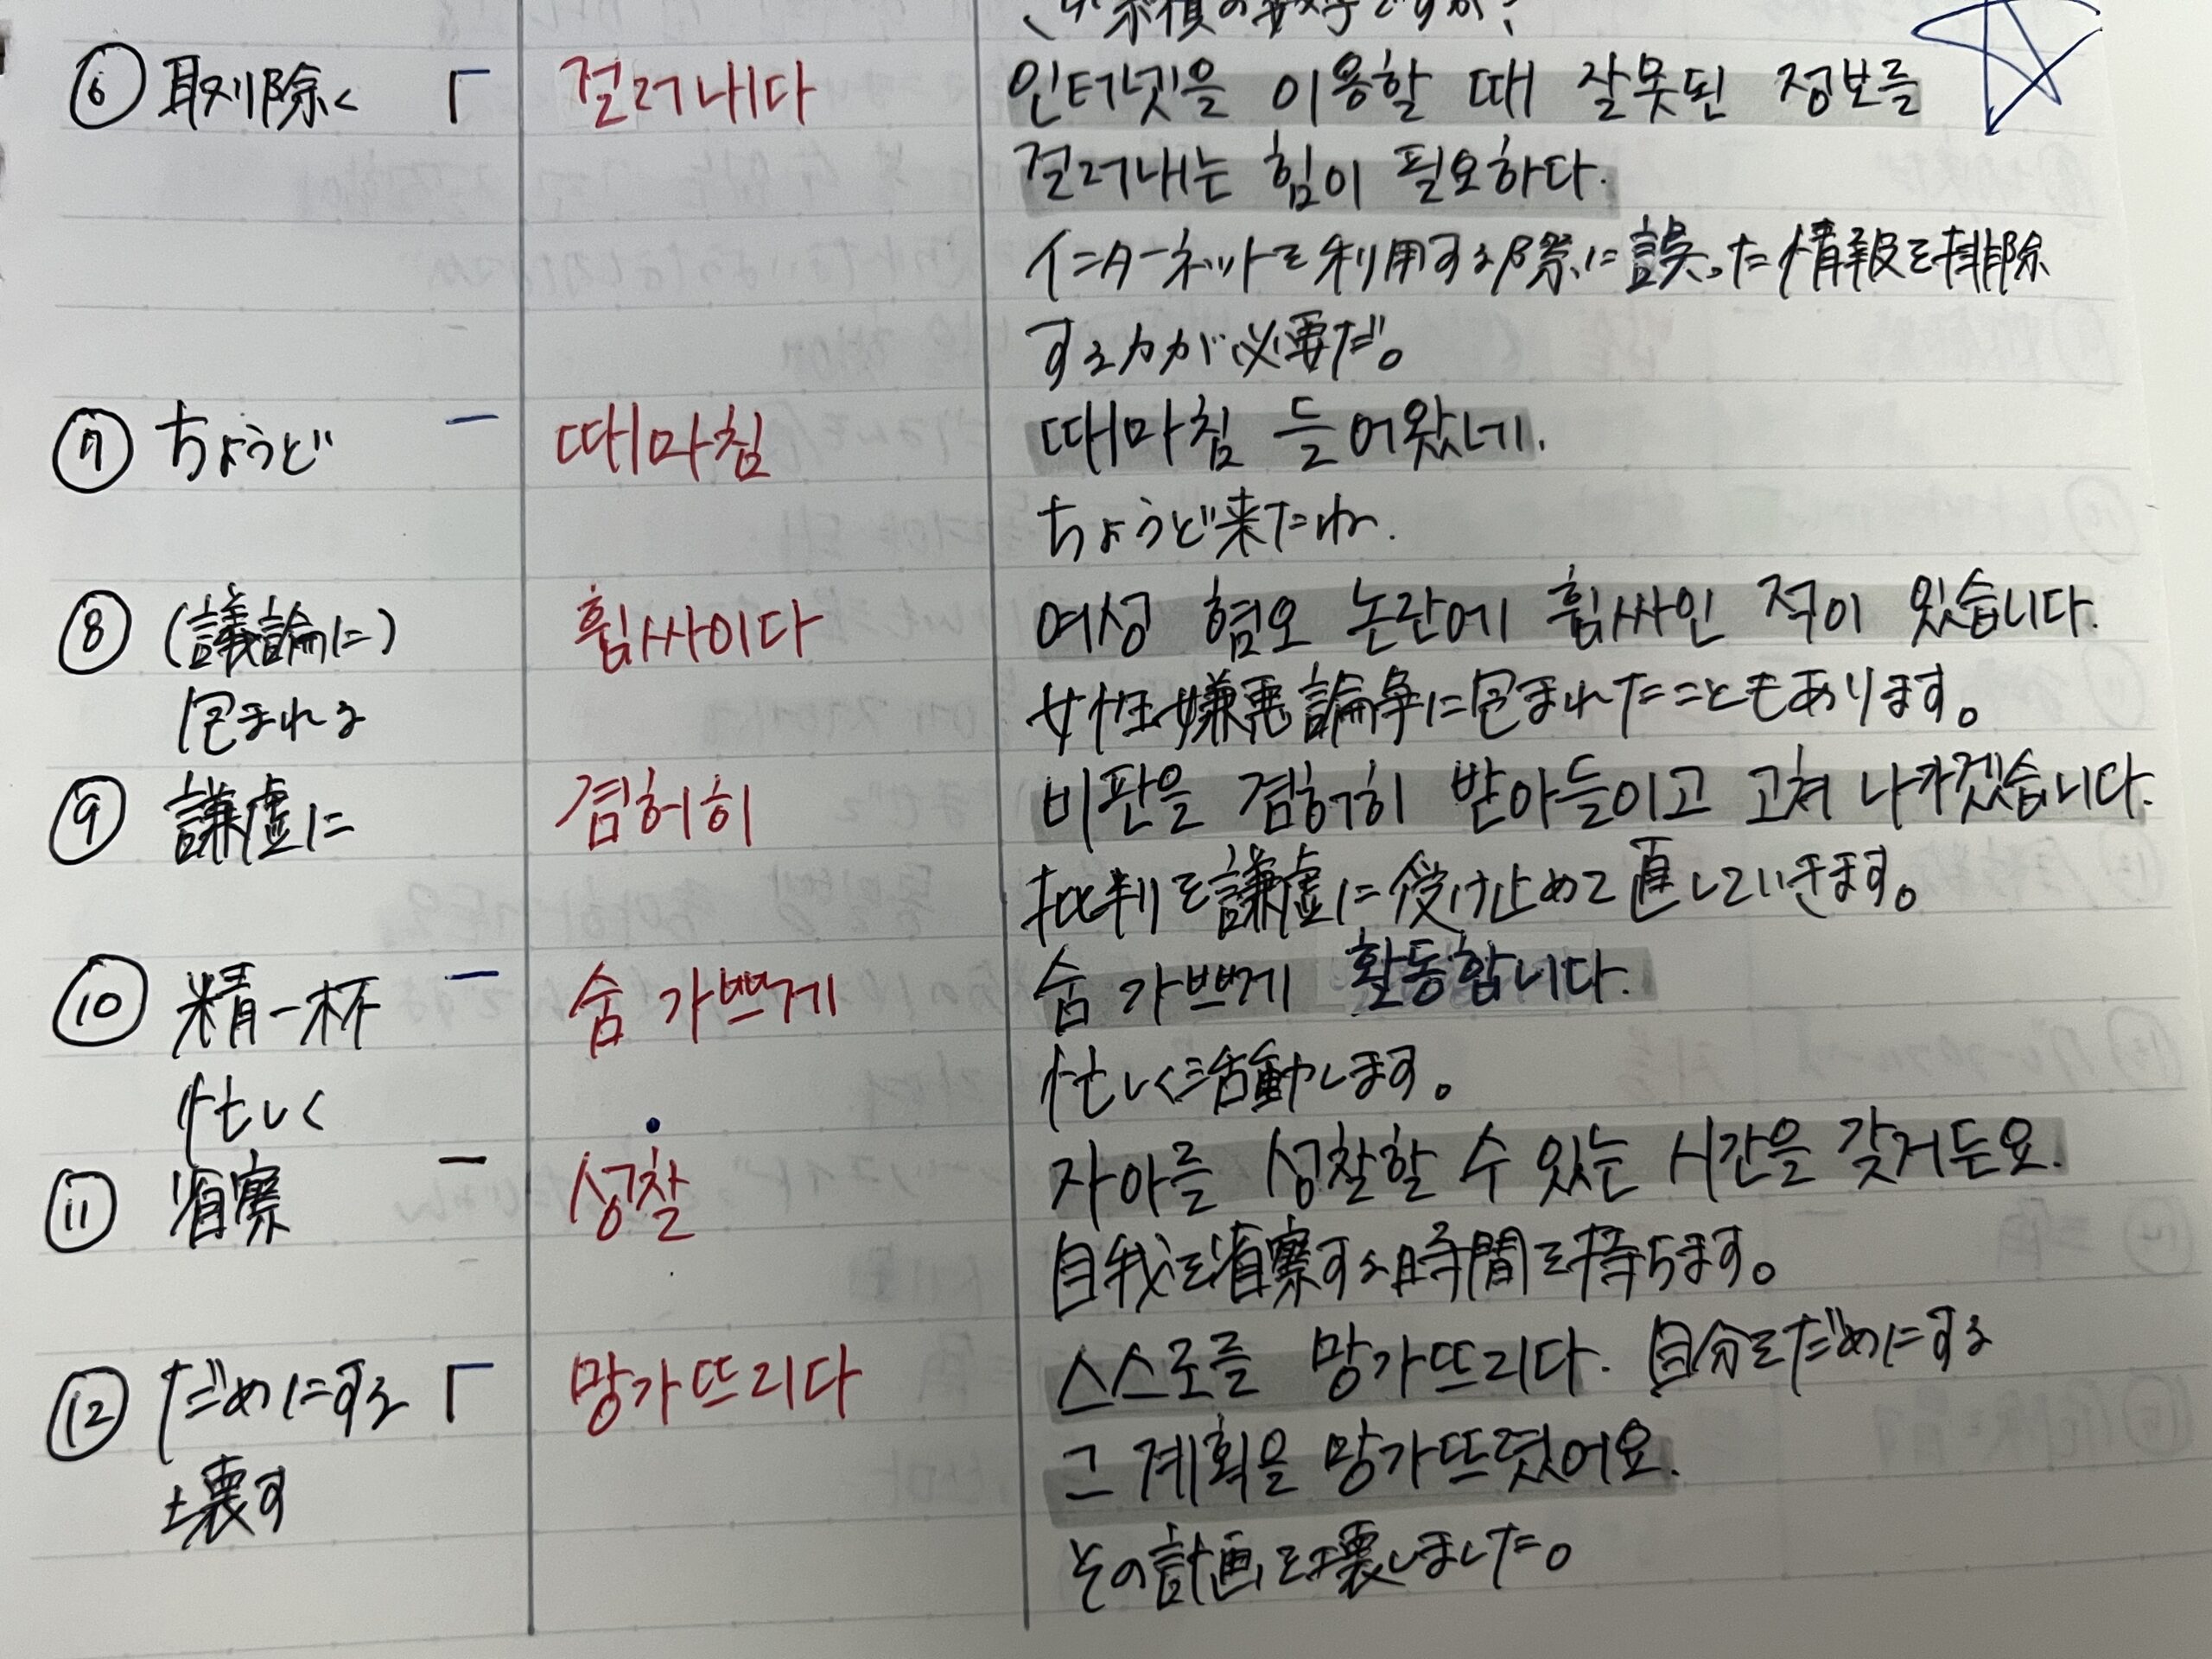 ⑥ 取り除く 걸러내다 인터넷을 이용할 때 잘못된 정보를
걸러내는 힘이 필요하다.
インターネットを利用する際に誤った情報を排除
する力が必要だ。
⑦ ちょうど 때마침 때마침 들어왔네.
ちょうど来たね.
⑧ (議論に) 휩싸이다 여성 혐오 논란에 휩싸인 적이 있습니다.
包まれる 女性嫌悪論争に包まれたこともあります。
⑨ 謙虚に 겸허히 비판을 겸허히 받아들이고 고쳐 나가겠습니다.
批判を謙虚に受け止めて直していきます。
⑩ 精一杯 숨 가쁘게 숨 가쁘게 활동합니다.
忙しく 忙しく活動します。
⑪ 省察 성찰 자아를 성찰할 수 있는 시간을 갖거든요.
自我を省察する時間を持ちます。
⑫ だめにする 망가뜨리다 스스로를 망가뜨리다. 自分をだめにする
壊す 그 계획을 망가뜨렸어요.
その計画を壊しました。